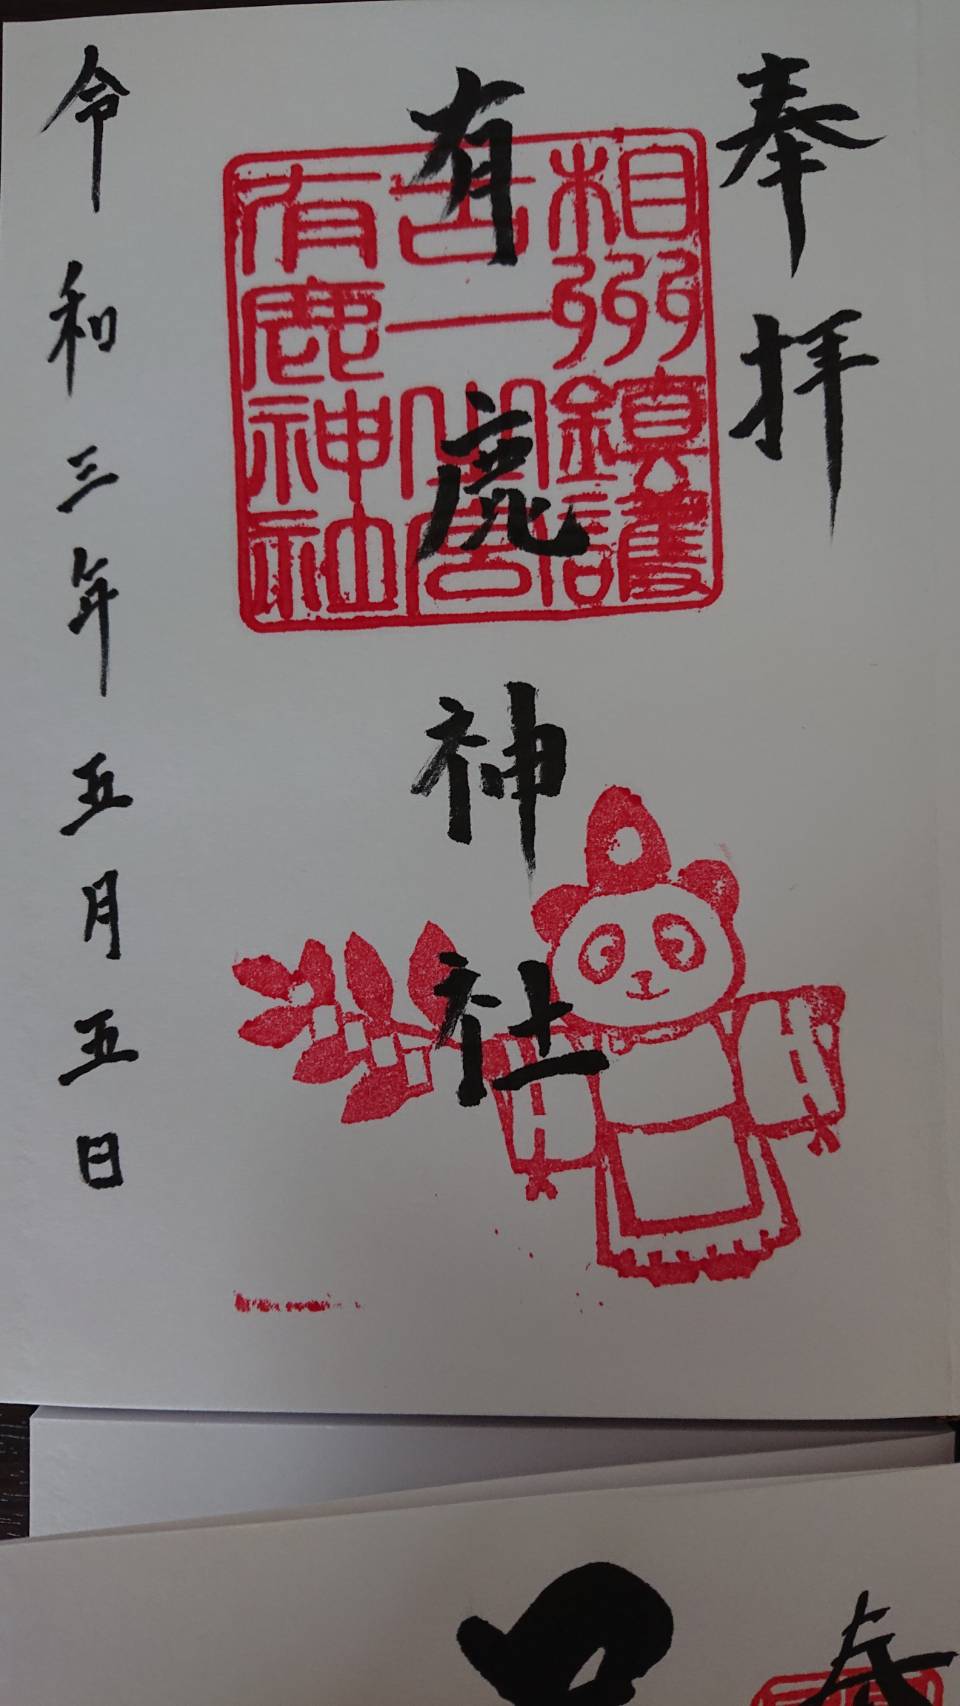 奉拝
有鹿神社
相州鎮護
古一之宮
有鹿神社
令和三年五月五日
奉